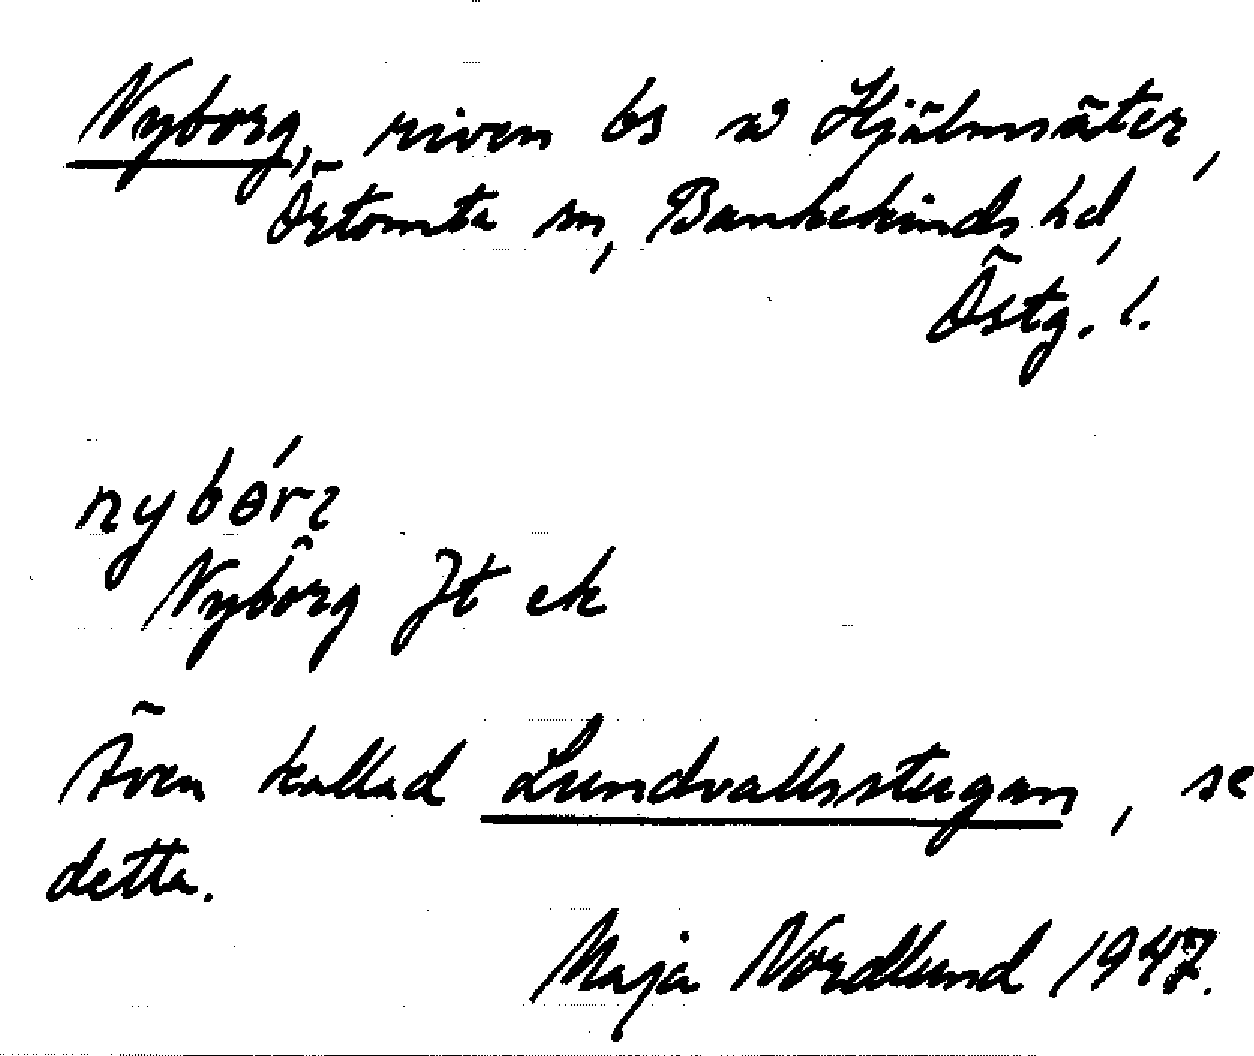 Nyborg, riven bs å Hjälmsäter,
Östomta sn, Bankekinds hd,
Östg. l.
nybór
Nyborg Jt ek
Även kallad Lundvallsstugan, se
detta.
Maja Nordlund 1947.